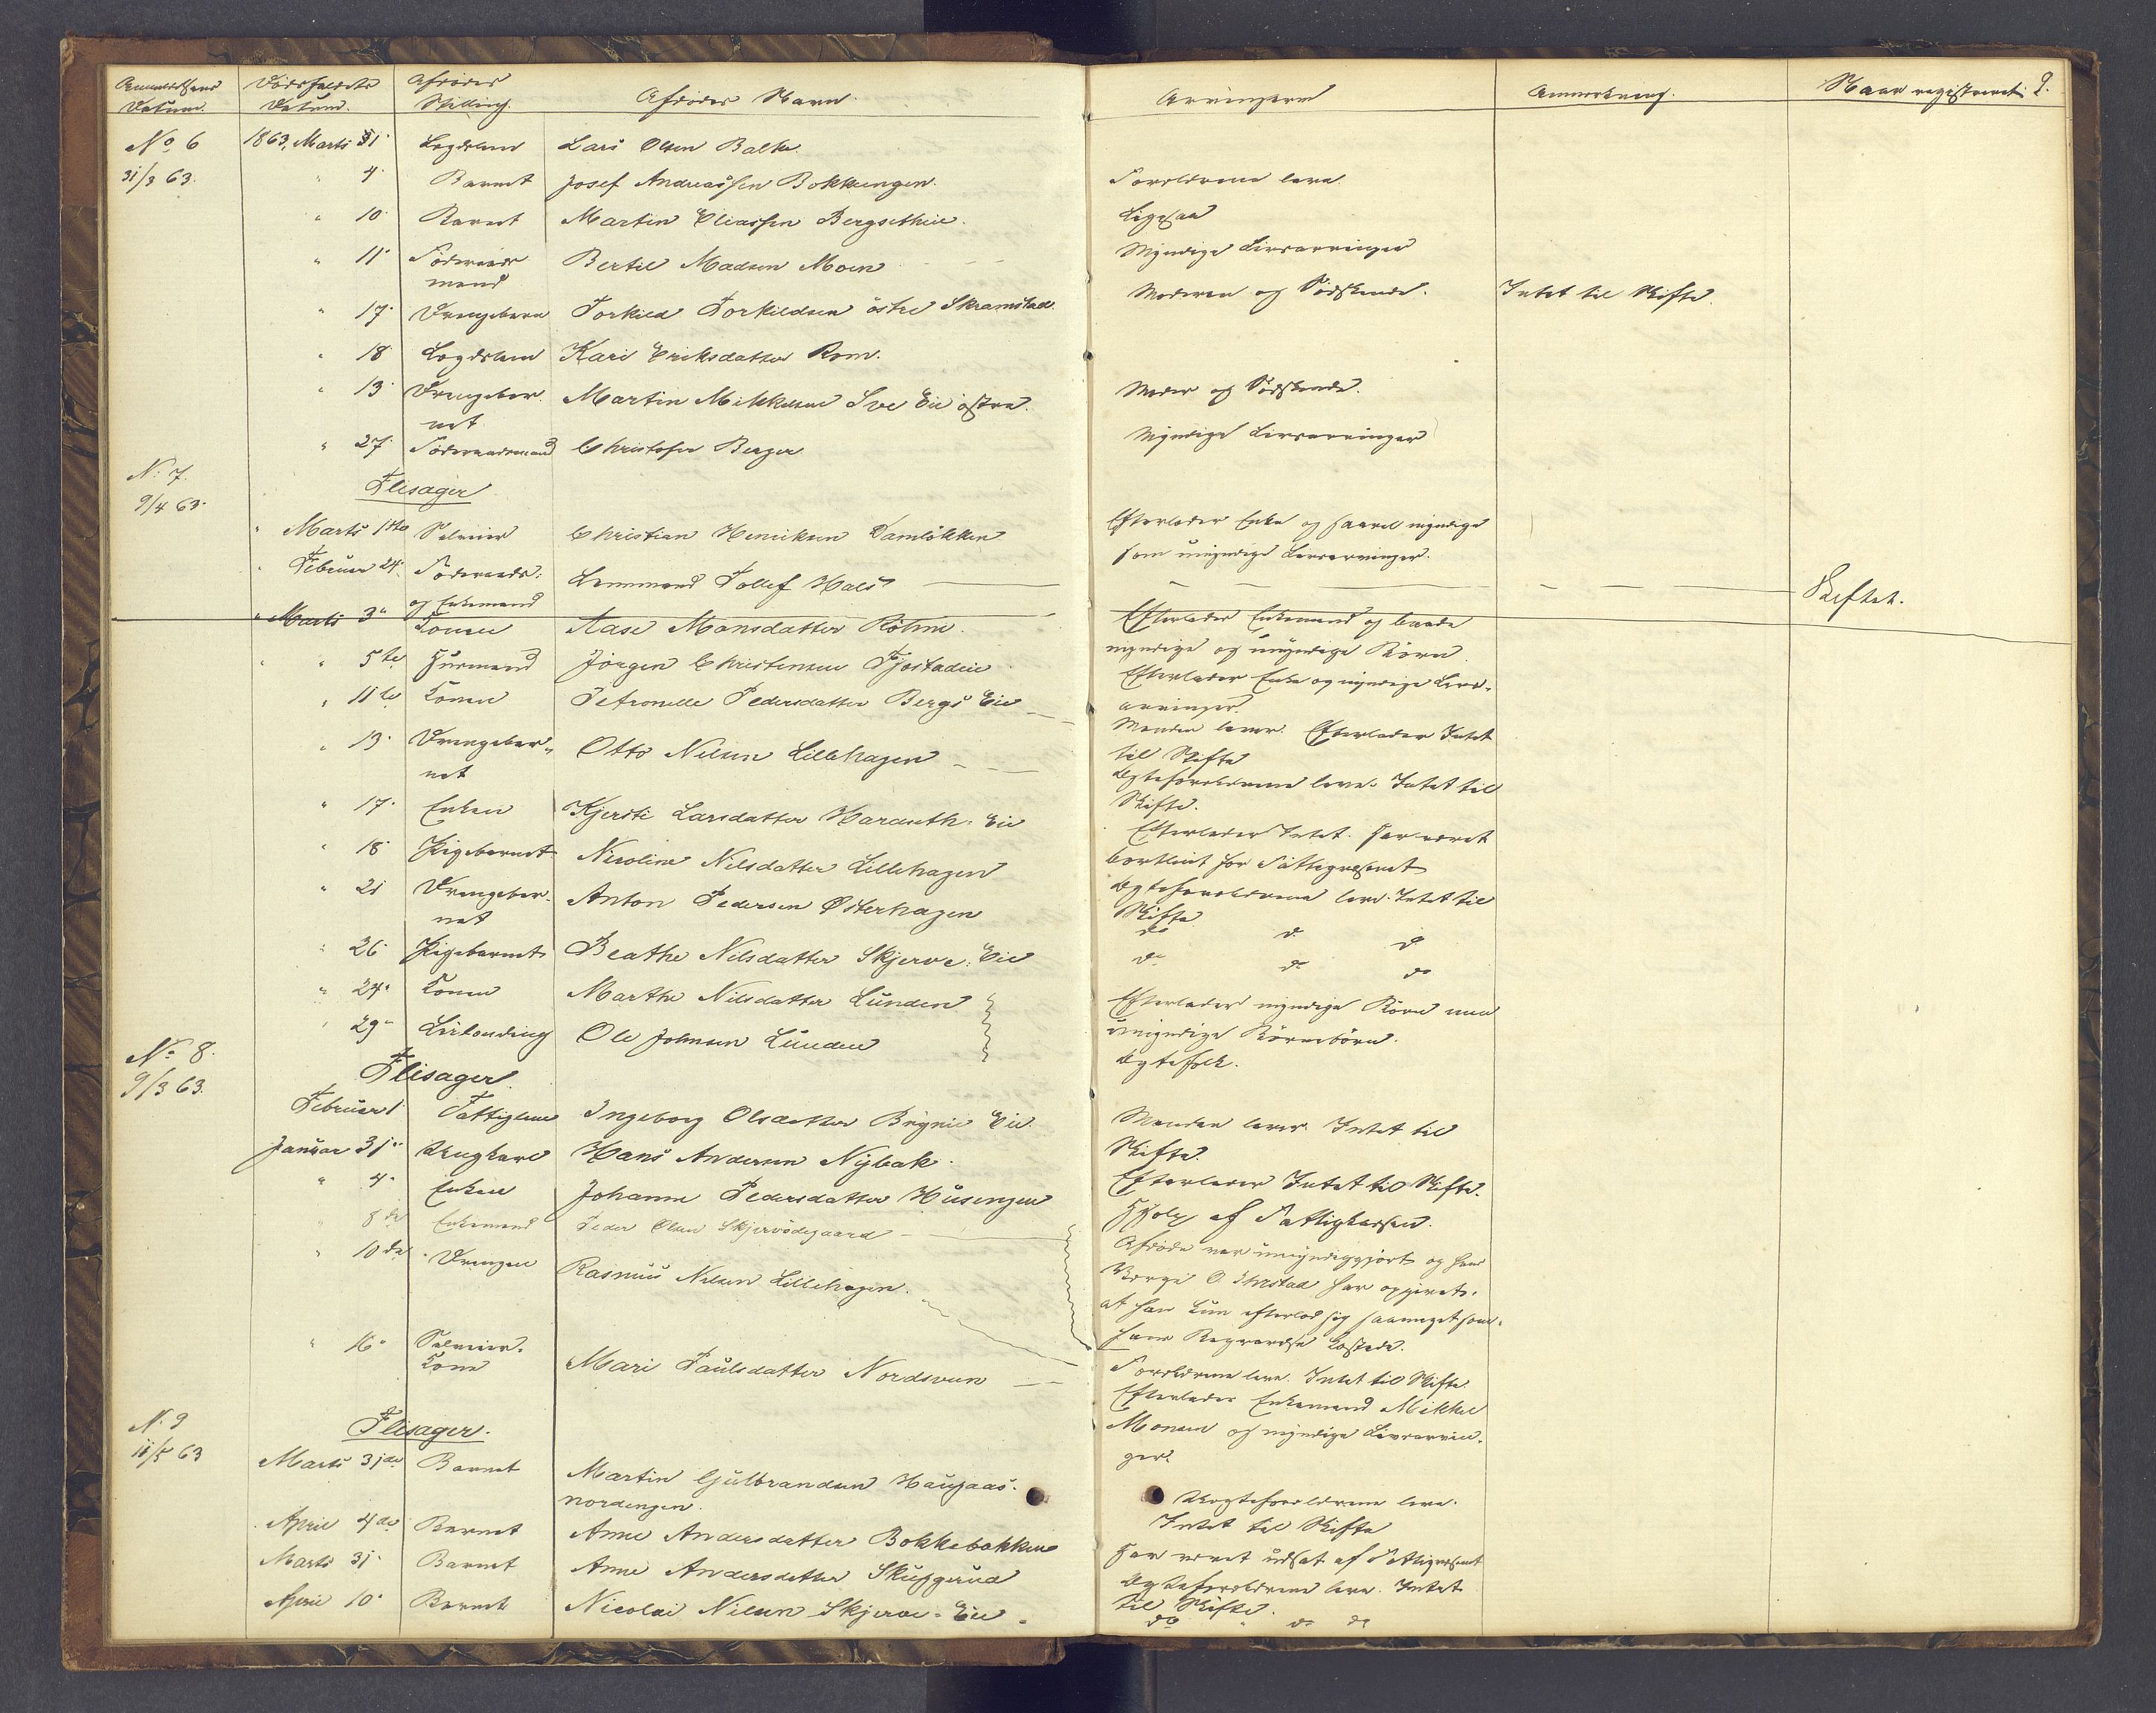 Anmeldelsens Datum. Dødsfaldets Datum. Afdødes Stilling. Afdødes Navn. Arvingerne Anmærkning. Naar registreret 9.
No 6 1863, Marts 31. Lægdslem Lars Olsen Balke.
31/3 63. " 4. Barnet Josef Andreassen Bokkengen. Forældrene leve.
" 10. Barnet Martin Eliassen Bergsetheie. Ligesaa
" 11. Föderaads Bertil Madsen Moen Myndige Livsarvinger
mand
" 17. Drengebarn Torkild Torkildsen östre Skramstad. Moderen og Södskende. Intet til Skifte.
" 18 Lægdslem Kari Eriksdatter Rom.
" 13. Drengebar Martin Mikkelsen Sve Eie östre. Moder og Södskende.
net
" 27. Föderaadsmand Christofer Berger Myndige Livsarvinger
N. 7.
9/4 63. Flisager
" Marts 1ste Selveier Christian Henriksen Damlökken Efterlader Enke og saavel myndige
som umyndige Livsarvinger.
" Februar 24. Föderaads: Lemmand Tollef Hals
og Enkemand Skiftet.
" Marts 3. Konen Aase Monsdatter Röhne. Efterlader Enkemand og baade
myndige og umyndige Börn.
" " 5te Huusmand Jörgen Christensen Fjöstadeie Efterlader Enke og myndige Livs-
arvinger.
" 11te Konen Petronelle Pedersdatter Bergs Eie Manden lever. Efterlader Intet
til Skifte
" 13. Drengebar- Otto Nilsen Lillehagen Ægteforældrene leve. Intet til
net Skifte.
" 17. Enken Kjersti Larsdatter Hardseth Eie Efterlader Intet. Har været
bortlint for Fattigvæsenet
" 18. Pigebarnet Nicoline Nilsdatter Lillehagen Ægteforældrene leve. Intet til
Skifte
" 21 Drengebar- Anton Pedersen Österhagen do do do
net
" 26. Pigebarnet Beathe Nilsdatter Skjerve. Eie do do do
" 24. Konen Marthe Nilsdatter Lunden Efterlader myndige Börn men
umyndige Börnebörn.
" 29. Ole Johnsen Lunden Ægtefolk.
No 8.
9/3 63. Flisager.
Februar 1. Fattiglem Ingeborg Olsdatter Brynie Eie Manden lever. Intet til
Skifte.
Januar 31. Ungkarl Hans Andersen Nybak. Efterlader Intet til Skifte.
" 4. Enken Johanne Pedersdatter Husengen Hjolp af Fattigkassen.
" 8de Enkemand Peder Olsen Skjervödegaard Afdöde var umyndiggjort og hans
Værge O. Ihrstad har opgivet,
at han kun efterlod sig saameget som
hans Begravelse kostede.
" 10de Drengen Rasmus Nilsen Lillehagen. Forældrene leve. Intet til Skifte
" 16. Selveier- Mari Paulsdatter Nordsveen Efterlader Enkemand Mikkel
Kone Monsen og myndige Livsarvin-
ger.
N. 9
11/5 63 Flisager.
Marts 31de Barnet Martin Gulbrandsen Haugaas- Ægteforældrene leve.
nordengen. Intet til Skifte
April 4de Barnet Anne Andersdatter Bokkebakken Har været udsat af Fattigvæsenet
Marts 31. Barnet Anne Andersdatter Skuggerud Ægteforældrene leve. Intet
til Skifte.
April 10. Barnet Nicolai Nilsen Skjerve. Eie. do " do do